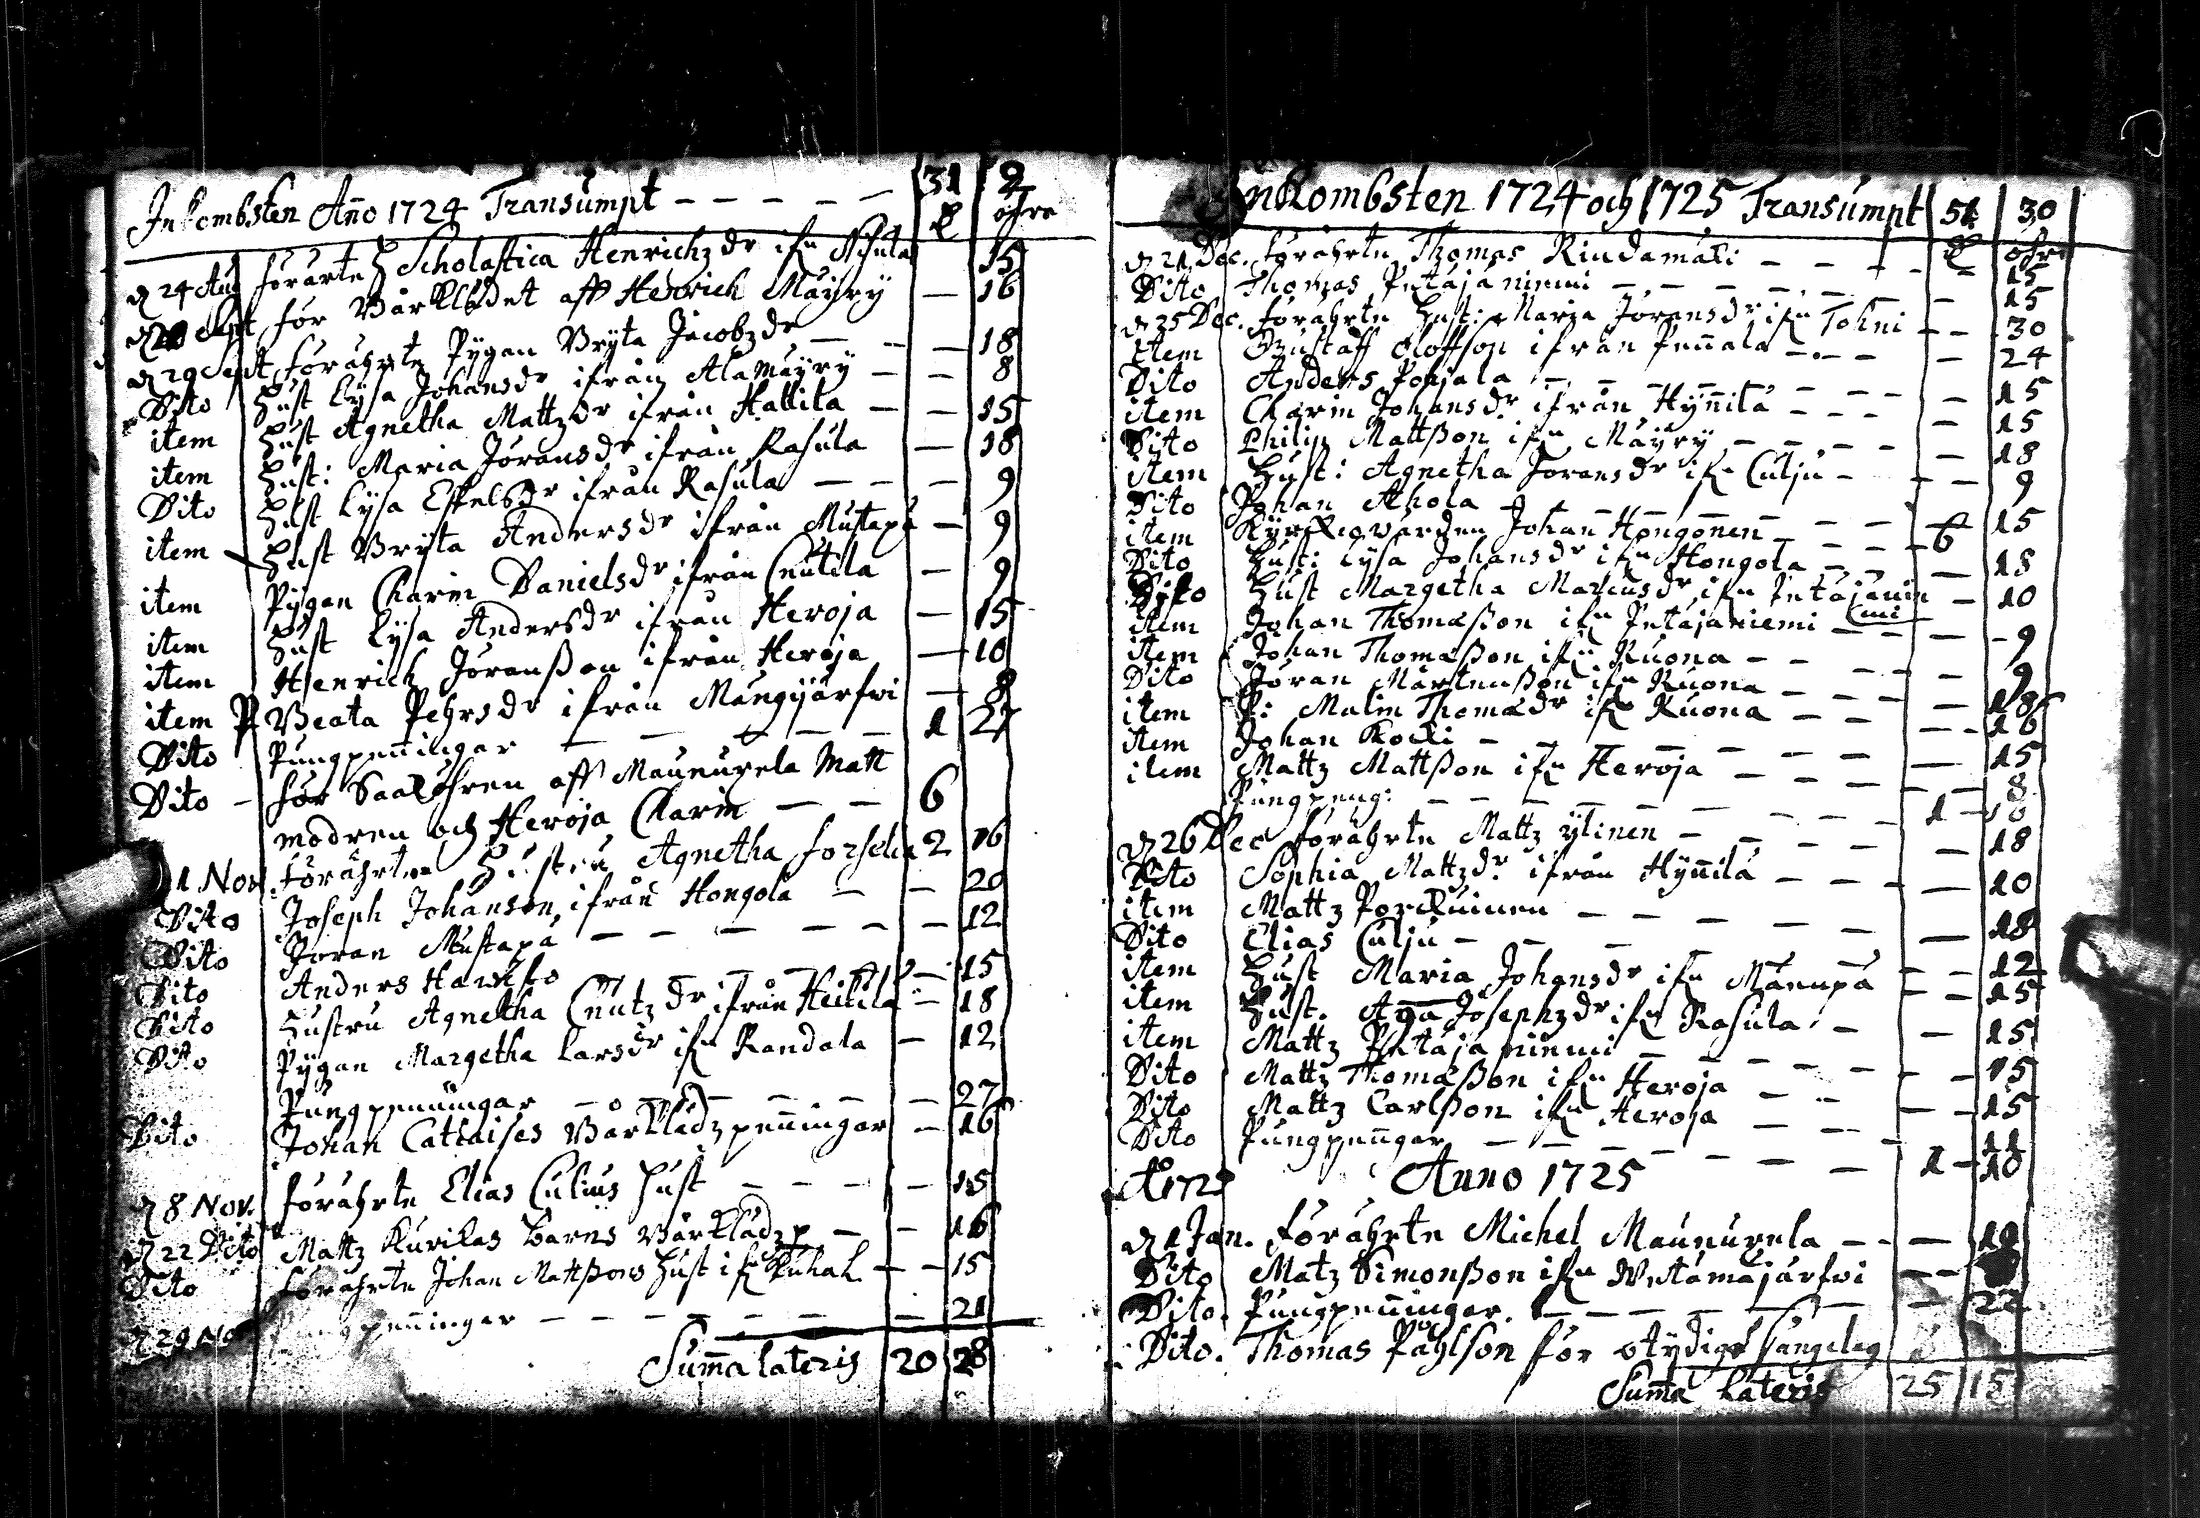 Inkombsten Año 1724 Transumpt — — — — — 31 2
öhre
d 24 Aug förärte H Scholastica Henrichz dr ifn Nisula 15
Sept för Bårklädet aff Henrich Mäyry — 16
d 29 Sept förährte Pygan Bryta Jacobzdr — — — 18
Dito Hust Lysa Johansdr ifrån Alamäyry — — 8
item Hust Agnetha Mattzdr ifrån Hallila — — 15
item Hust: Maria Jöransdr ifrån Rasula — 18
Dito Hust Lysa Eskelsdr ifrån Rasula — — — 9
item Hust Bryta Andersdr ifrån Mustapä — 9
item Pygan Charin Danielsdr ifrån Cnutila — 9
item Hust Lysa Andersdr ifrån Heroja — 15
item Henrich Jöranßon ifrån Heroja — 10
item P Beata Pehrsdr ifrån Mängijärfwi — 8
Dito Pungpenningar — — — — — 1 27
Dito – för Saalöhren aff Maunurela Matt
modren och Heroja Charin — — 6
1 Nov. förährten Hustru Agnetha Forselia 2 16
Dito Joseph Johanson, ifrån Hongola — — 20
Dito Joran Mustapä — — — — — — 12
Dito Anders Harkko — — — — 15
Dito Hustru Agnetha Cnutzdr ifrån Heikilä — 18
Dito Pygan Margetha Larsdr ifn Randala — 12
Pungpenningar — — — — — — 27
Dito Johan Cattaises Bårklädz penningar — 16
d 8 Nov. förährte Elias Culius Hust — — — — 15
d 22 Dito Mattz Kurikas barns bårklädz p — — 16
Dito förährte Johan Mattßons Hust ifn Kuhal. — — 15
d 29 No penningar — — — — — — 21
Suma lateris 20 28
Inkombsten 1724 och 1725 Transumpt 51 30
öhre
d 21 Dec. förährte Thomas Rindamäki — — — — 15
Dito Thomas Petäjäniemi — — — — — — 15
d 25 Dec. förährte Hust: Maria Jöransdr ifn Tohni — — 30
Item Gustaff Oloffson ifrån Pennala — — — 24
Dito Anders Pohjala — — — — — — 15
item Charin Johansdr ifrån Hynnilä — — — — 15
Dito Philip Mattßon ifn Mäyry — — — — — 18
item Hust: Agnetha Jöransdr ifn Culju — — — 9
Dito Johan Ahola — — — — — — 15
item Kyrkiovärden Johan Hongonen — — — 6
Dito Hust: Lysa Johansdr ifn Hongola — — — 18
Dyto Hust Margetha Marcusdr ifn Petäjänie — 10
Item Johan Thomæßon ifn Petäjäniemi (mi — — 9
Item Johan Thomæßon ifn Ruona — — — — — 9
Dito Jöran Mårtenßon ifn Ruona — — — — 18
item P: Malin Thomædr ifn Ruona — — — — 16
item Johan Kocki — — — — — — 15
item Mattz Mattßon ifn Heroja — — — — — 8
Pungpeng: — — — — — — 1 – 18
d 26 Dec förährte Mattz Ylinen — — — — 18
Dito Sophia Mattzdr ifrån Hynnilä — — — — — 10
item Mattz Porkuinen — — — — — — 18
Dito Elias Culju — — — — — 12
item Hust Maria Johansdr ifn Mäenpä — — 15
item Hust. Aga Josephzdr ifn Rasula — — 15
item Mattz Petäjäniemi — — — — — 15
Dito Mattz Thomæßon ifn Heroja — — — 15
Dito Mattz Carlßon ifn Heroja — — — — 11
Dito Pungpenngar — — — — — — 1 – 10
Anno 1725
d 1 Jan. förährte Michel Maunurela — — —
Dito Matz Simonßon ifn Wetämäjärfwi — —
Dito. Pungpenningar — — — — — — 22
Dito. Thomas Påhlson för otydigt sängeleg
Suma Lateris 25 15